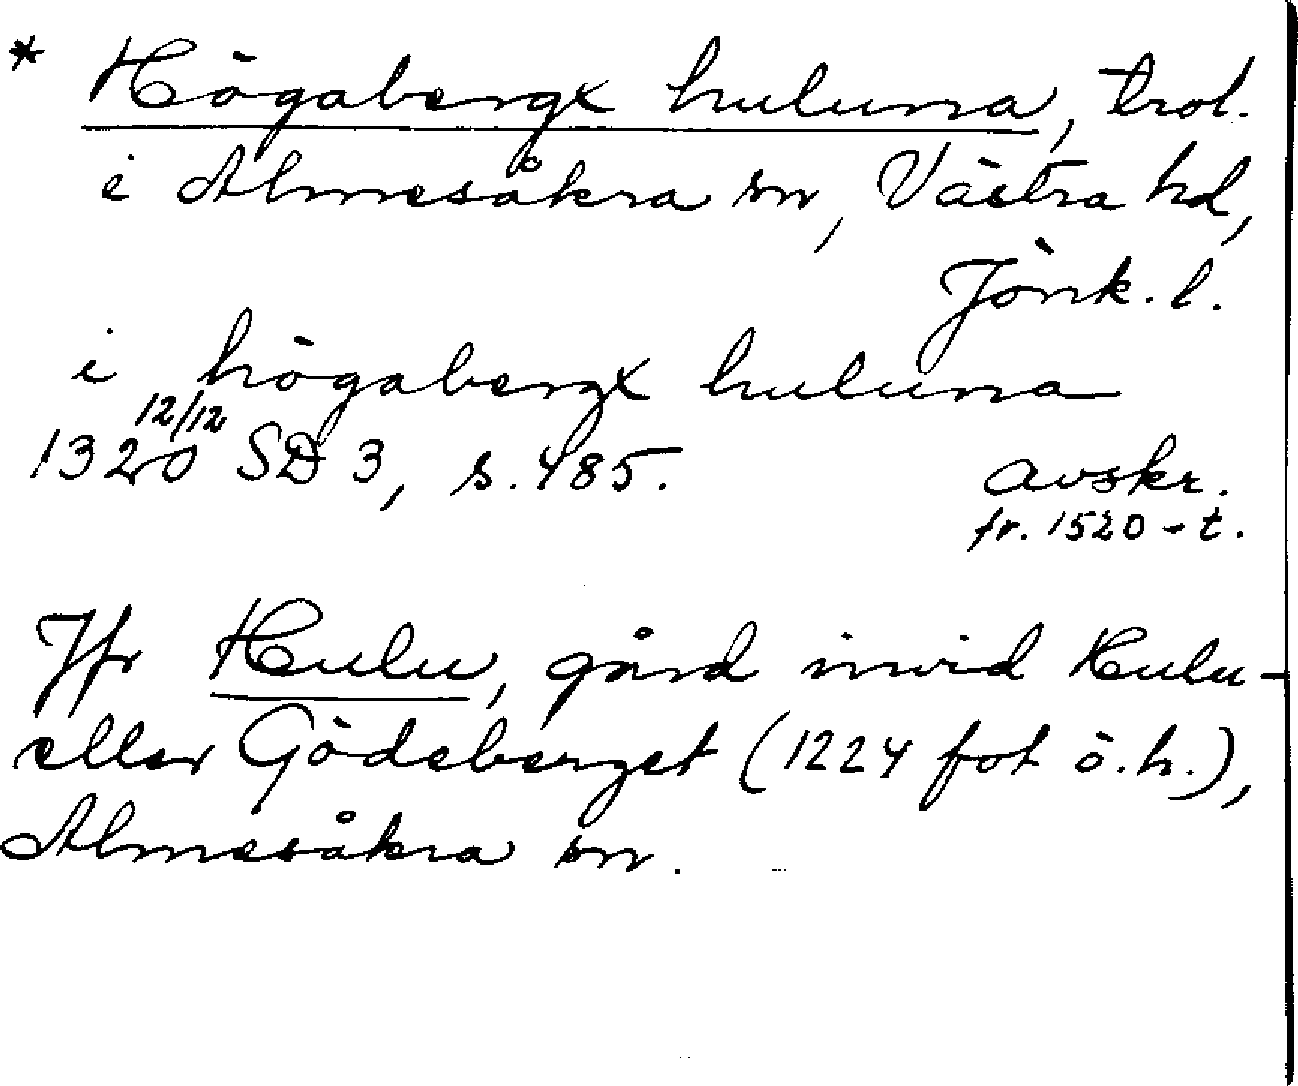 * Högabergx huluna, trol.
i Almesåkra sn, Västra hd,
Jönk. l.
i högabergx huluna
12/12
1320 SD 3, s. 485.
avskr.
fr. 1520-t.
Jfr Hulu, gård invid Hulu-
eller Gödeberget (1224 fot ö.h.),
Almesåkra sn.